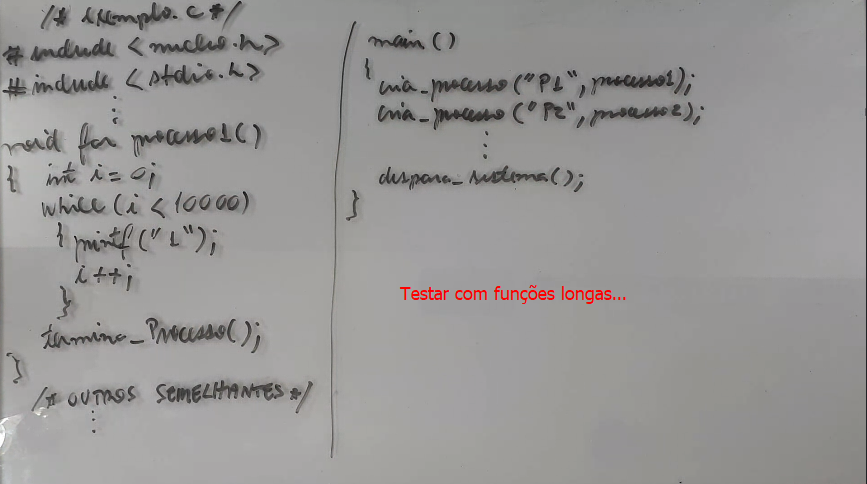 /* exemplo.c */
# include <nucleo.h>
# include <stdio.h>
⋮
void far processo1()
{ int i = 0;
while (i < 10000)
{ printf("1");
i++;
}
termina_Processo();
}
/* OUTROS SEMELHANTES */
⋮
main()
{
cria_processo("P1", processo1);
cria_processo("P2", processo2);
⋮
dispara_sistema();
}
Testar com funções longas...